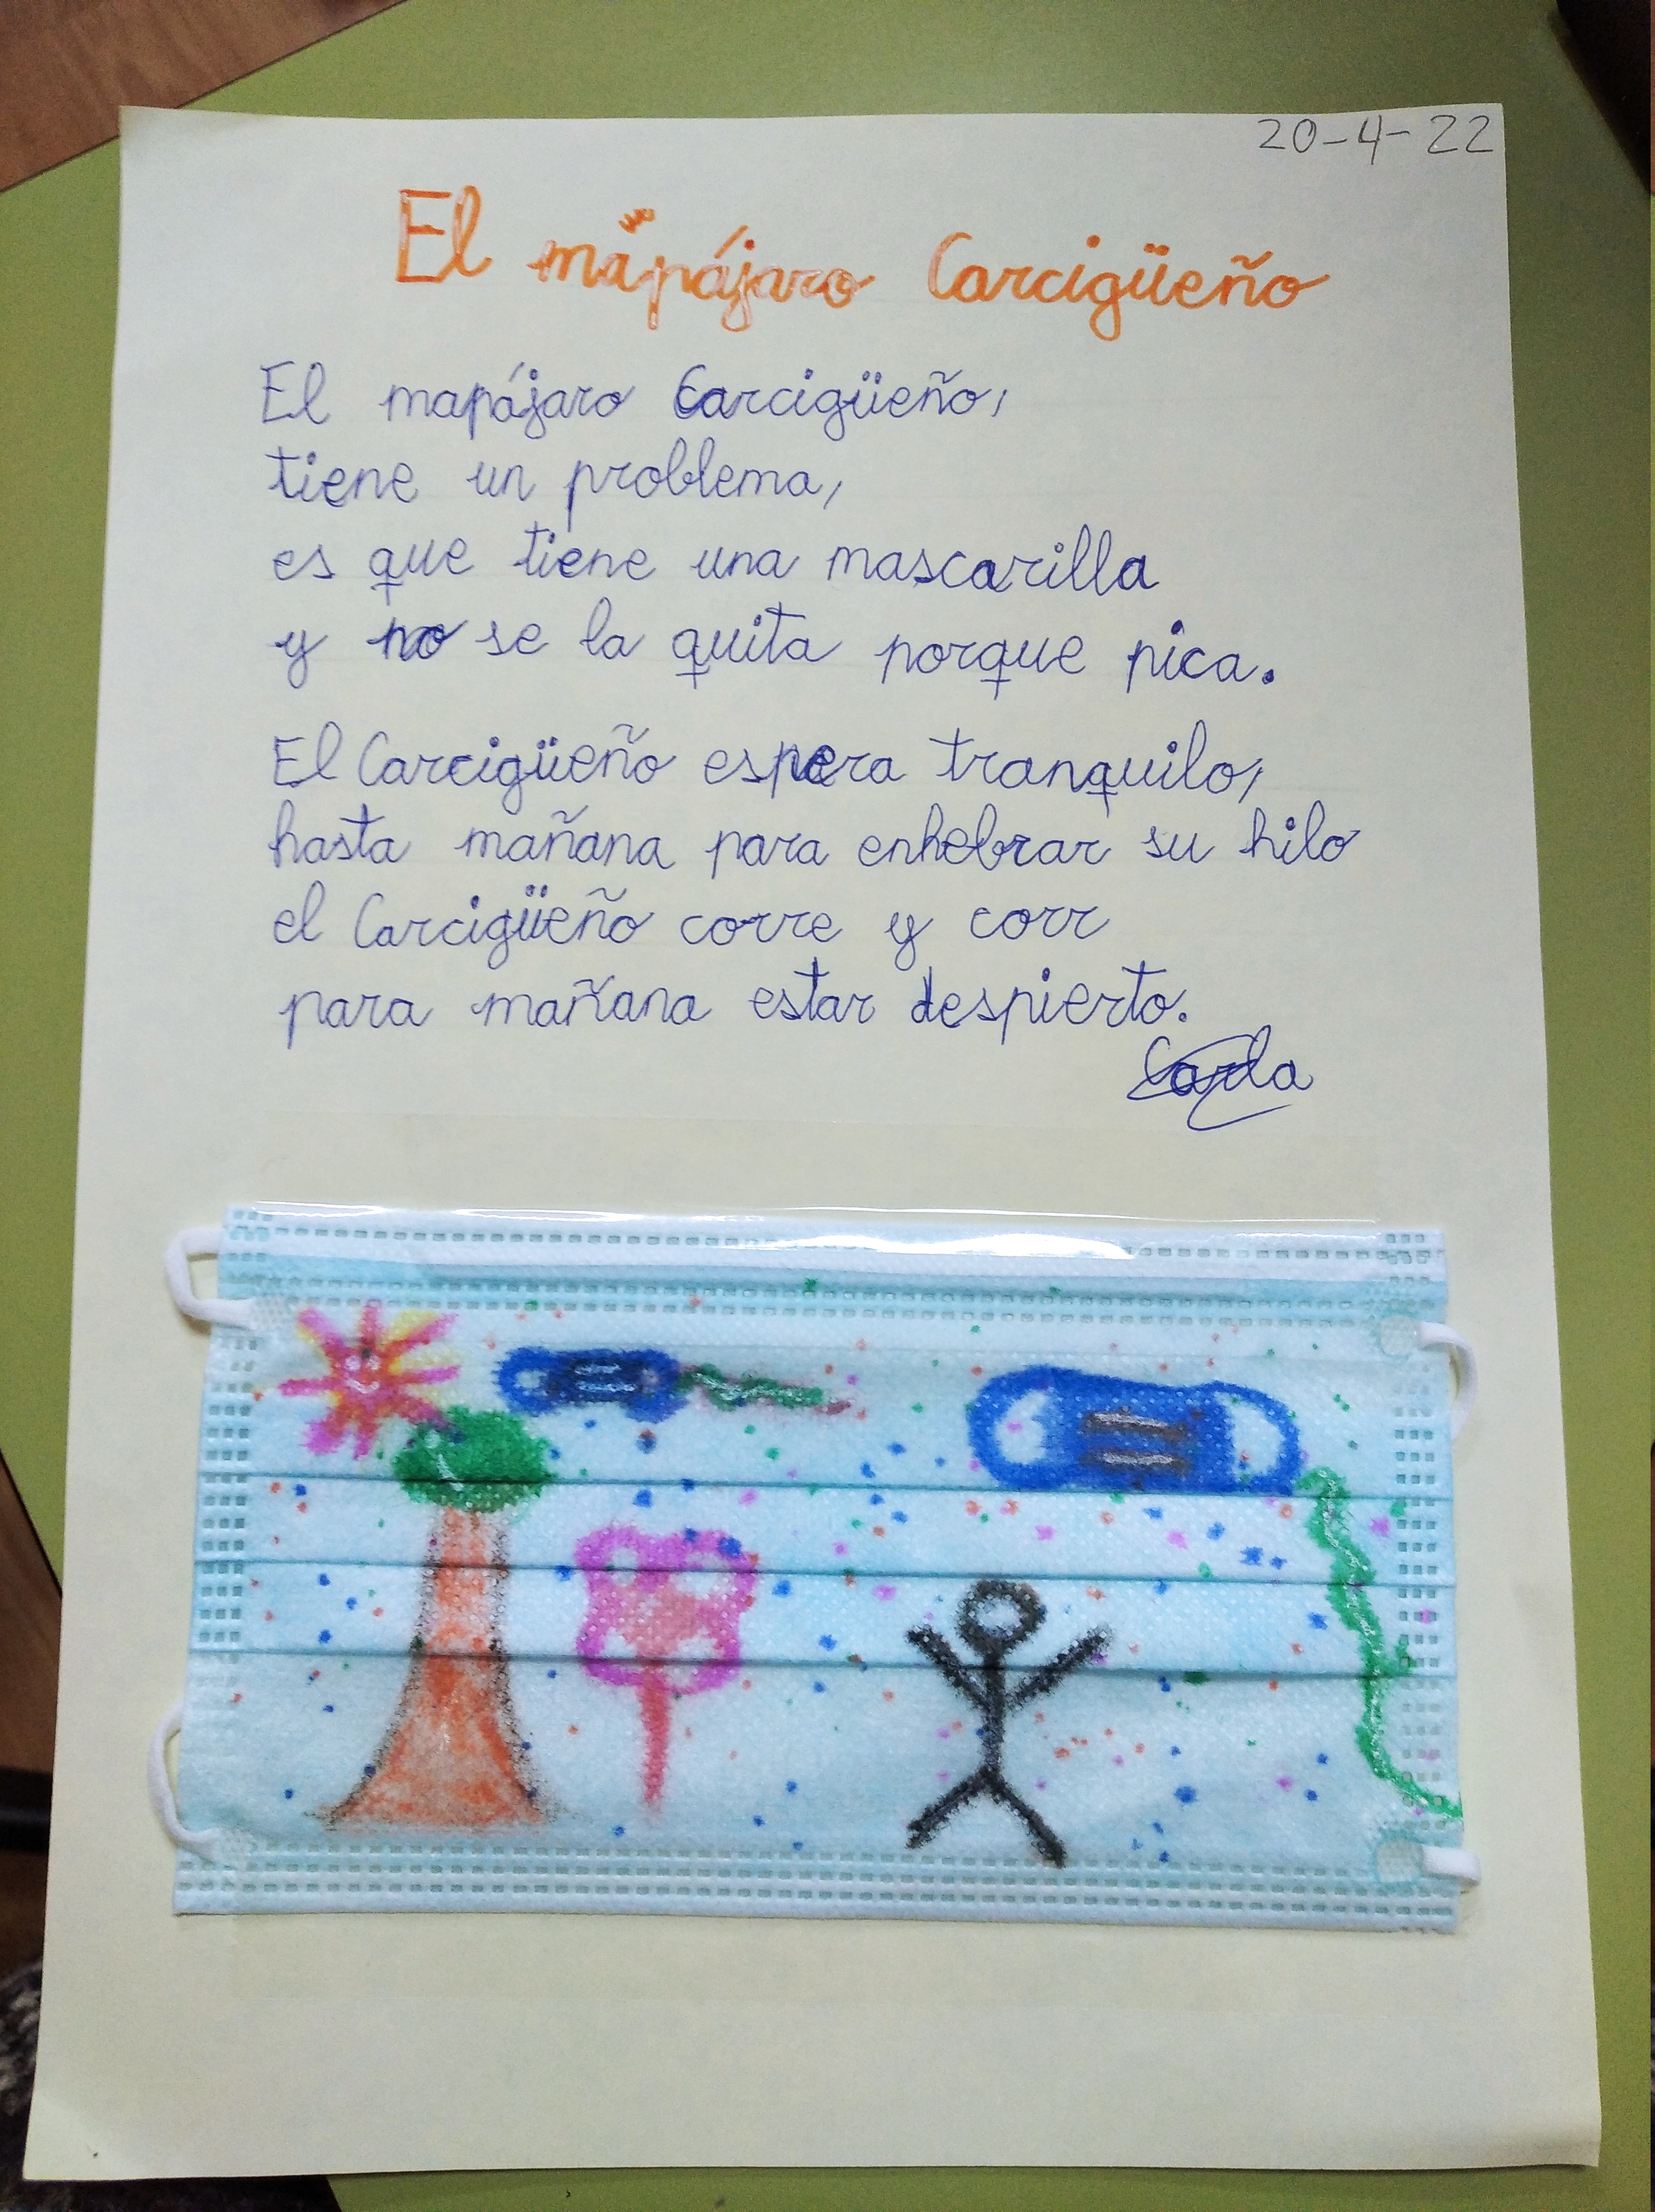 20-4-22
El mapájaro Carcigüeño
El mapájaro Carcigüeño,
tiene un problema,
es que tiene una mascarilla
y no se la quita porque pica.
El Carcigüeño espera tranquilo,
hasta mañana para enhebrar su hilo
el Carcigüeño corre y corr
para mañana estar despierto.
Carla